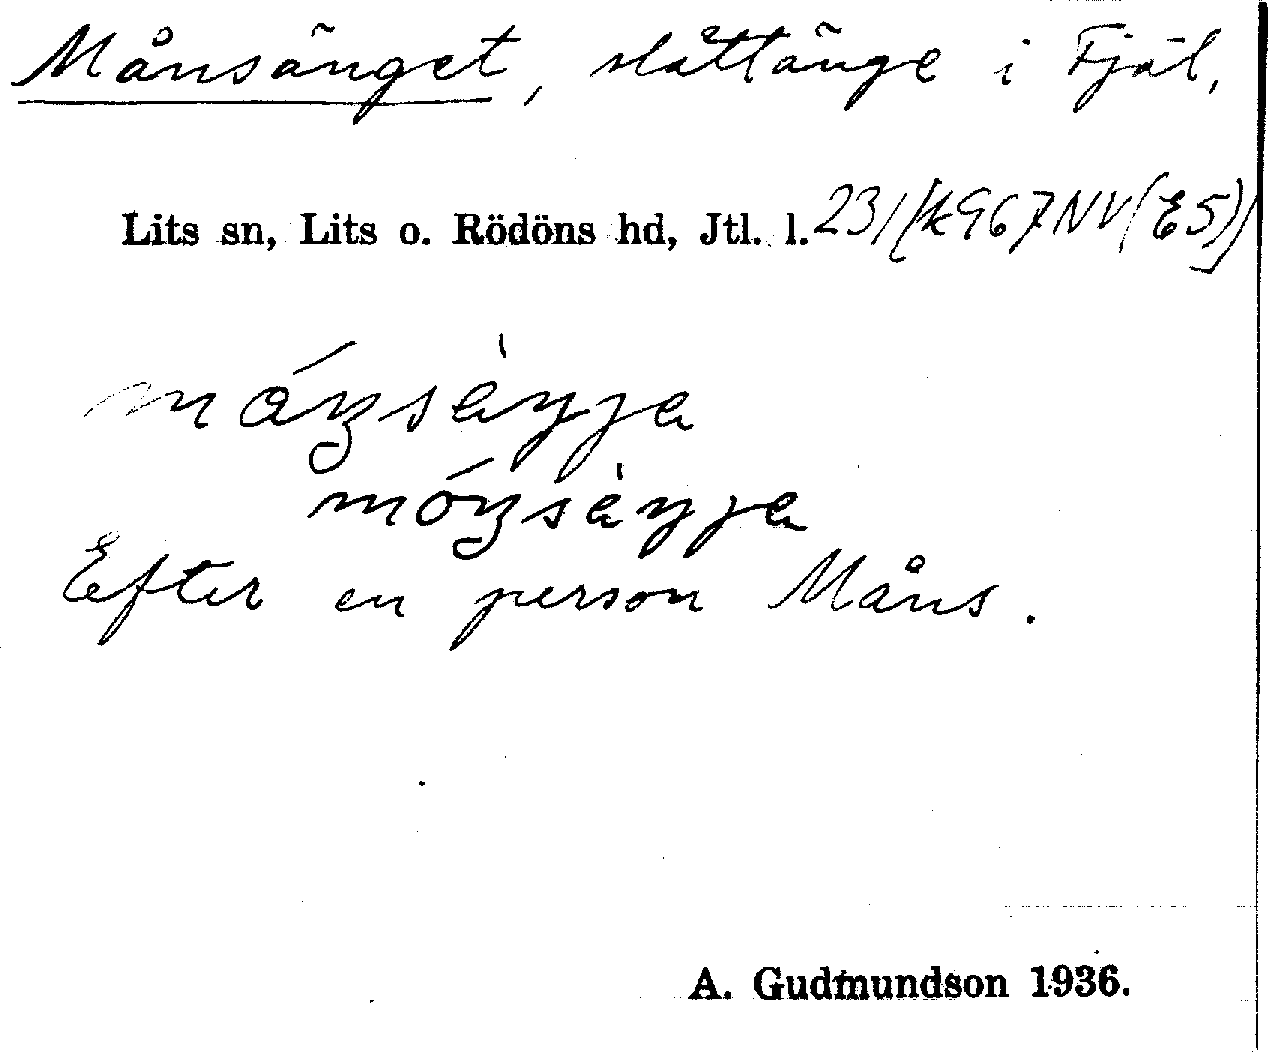 Månsänget, slåttänge i Fjäl,
Lits sn, Lits o. Rödöns hd, Jtl. l. 23/[k967NV(E5)]
Efter en person Måns.
A. Gudmundson 1936.